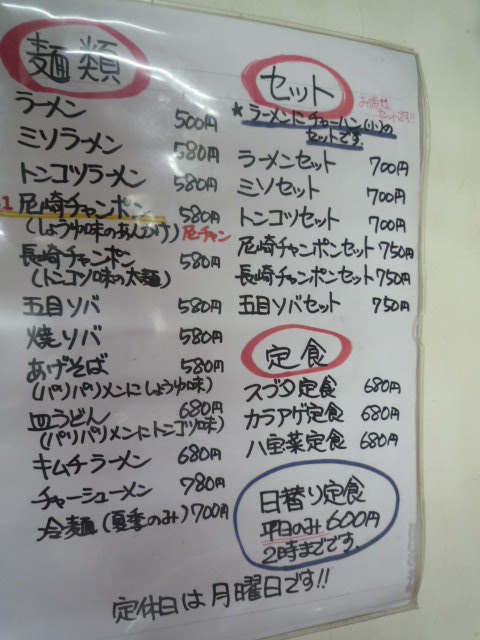 麺類
ラーメン 500円
ミソラーメン 580円
トンコツラーメン 580円
1 尼崎チャンポン 580円
(しょうゆ味のあんかけ) 尼チャン
長崎チャンポン 580円
(トンコツ味の太麺)
五目ソバ 580円
焼ソバ 580円
あげそば 580円
(パリパリメンにしょうゆ味)
皿うどん 680円
(パリパリメンにトンコツ味)
キムチラーメン 680円
チャーシューメン 780円
冷麺(夏季のみ) 700円
セット
お徳なセットです!!
*ラーメンにチャーハン(小)の
セットです。
ラーメンセット 700円
ミソセット 700円
トンコツセット 700円
尼崎チャンポンセット 750円
長崎チャンポンセット 750円
五目ソバセット 750円
定食
スブタ定食 680円
カラアゲ定食 680円
八宝菜定食 680円
日替り定食
平日のみ600円
2時までです。
定休日は月曜日です!!